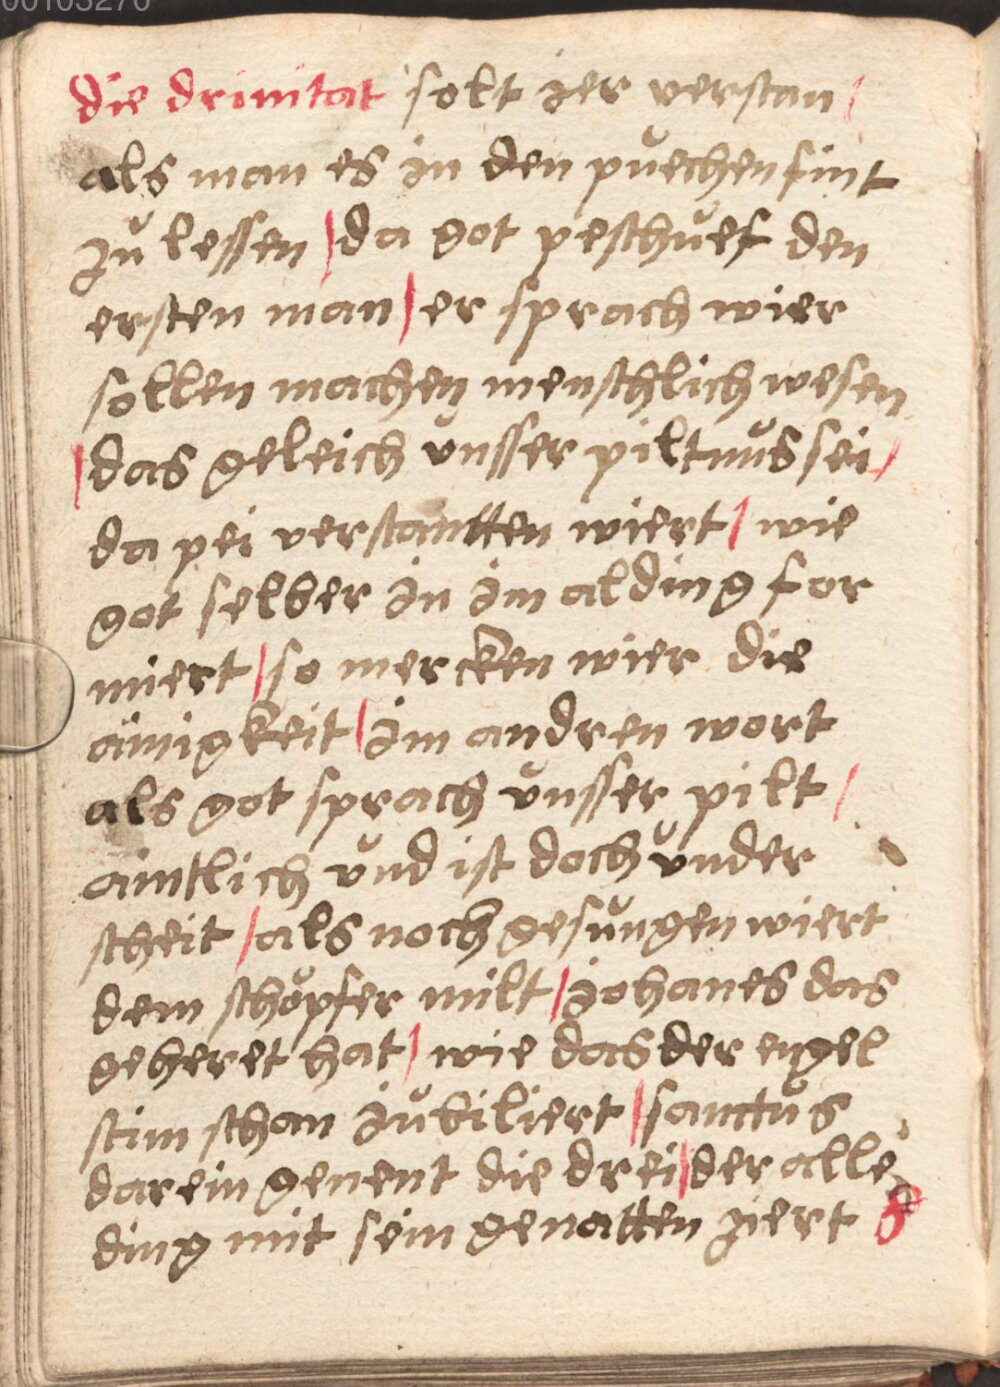 00103270
die drinitat solt ier verstan /
als man es in den půechen fint
zů lessen / da got peschůef den
ersten man / er sprach wier
sollen machen menschlich wesen
/ das geleich vnsser piltnůs sei /
da pei verstantten wiert / wie
got selber in im al ding for
miert / so mercken wier die
ainigkeit / im andren wort
als got sprach vnsser pilt /
aintlich vnd ist doch vnder
scheit / als noch gesůngen wiert
dem schöpfer milt / iohanes das
geheret hat / wie das der engel
stim schan iůbiliert / sanctůs
darein genent die drei / der alle
ding mit sein genatten ziert